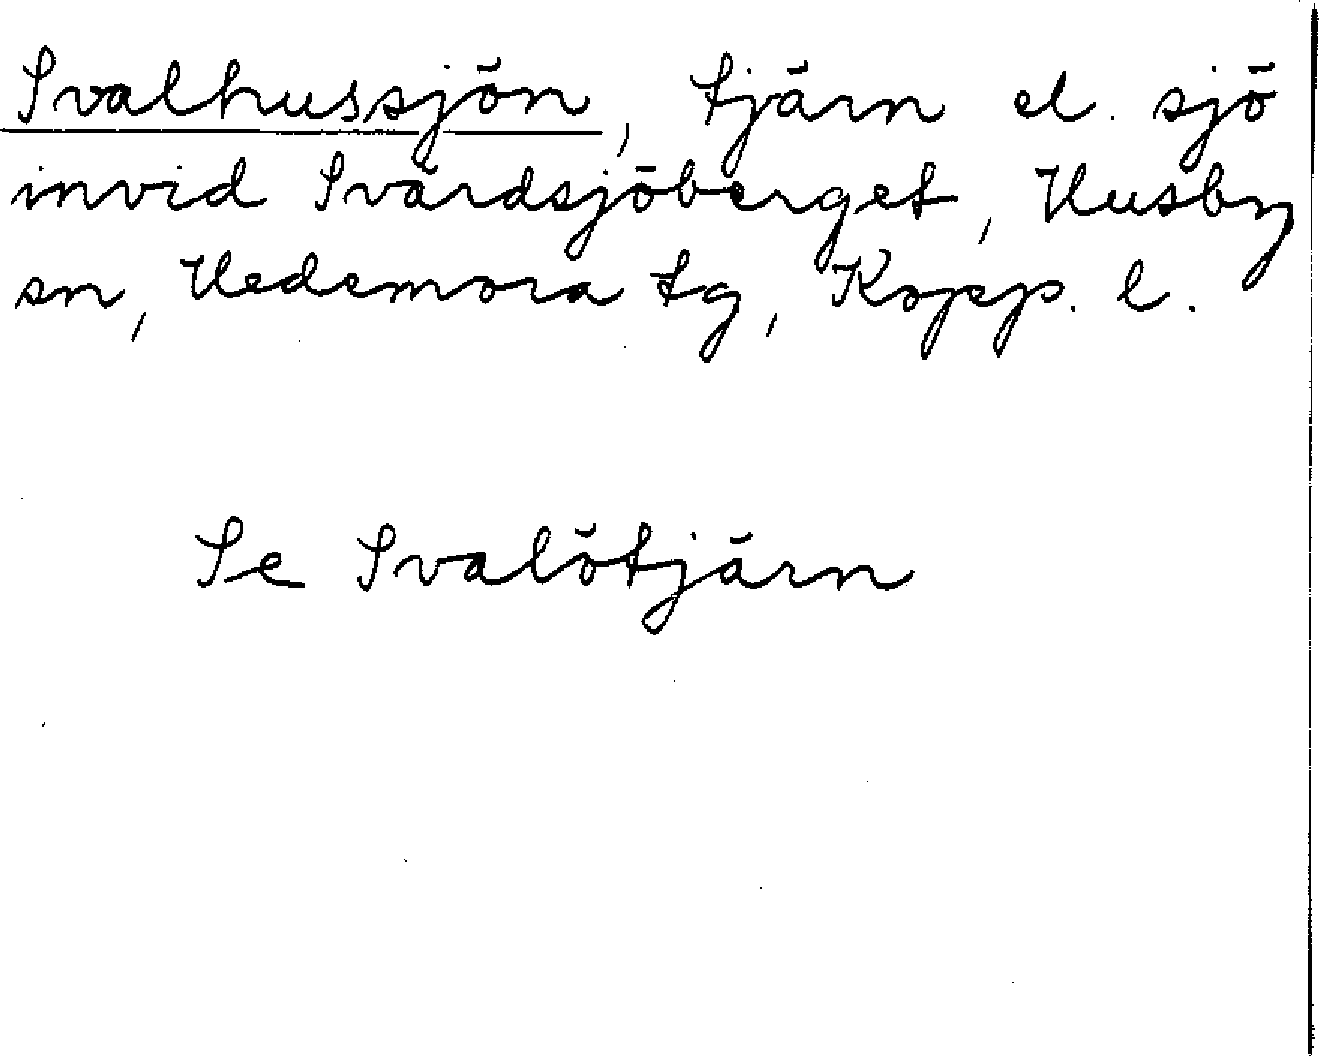 Svalhussjön, tjärn el. sjö
invid Svärdsjöberget, Husby
sn, Hedemora tg, Kopp. l.
Se Svalötjärn